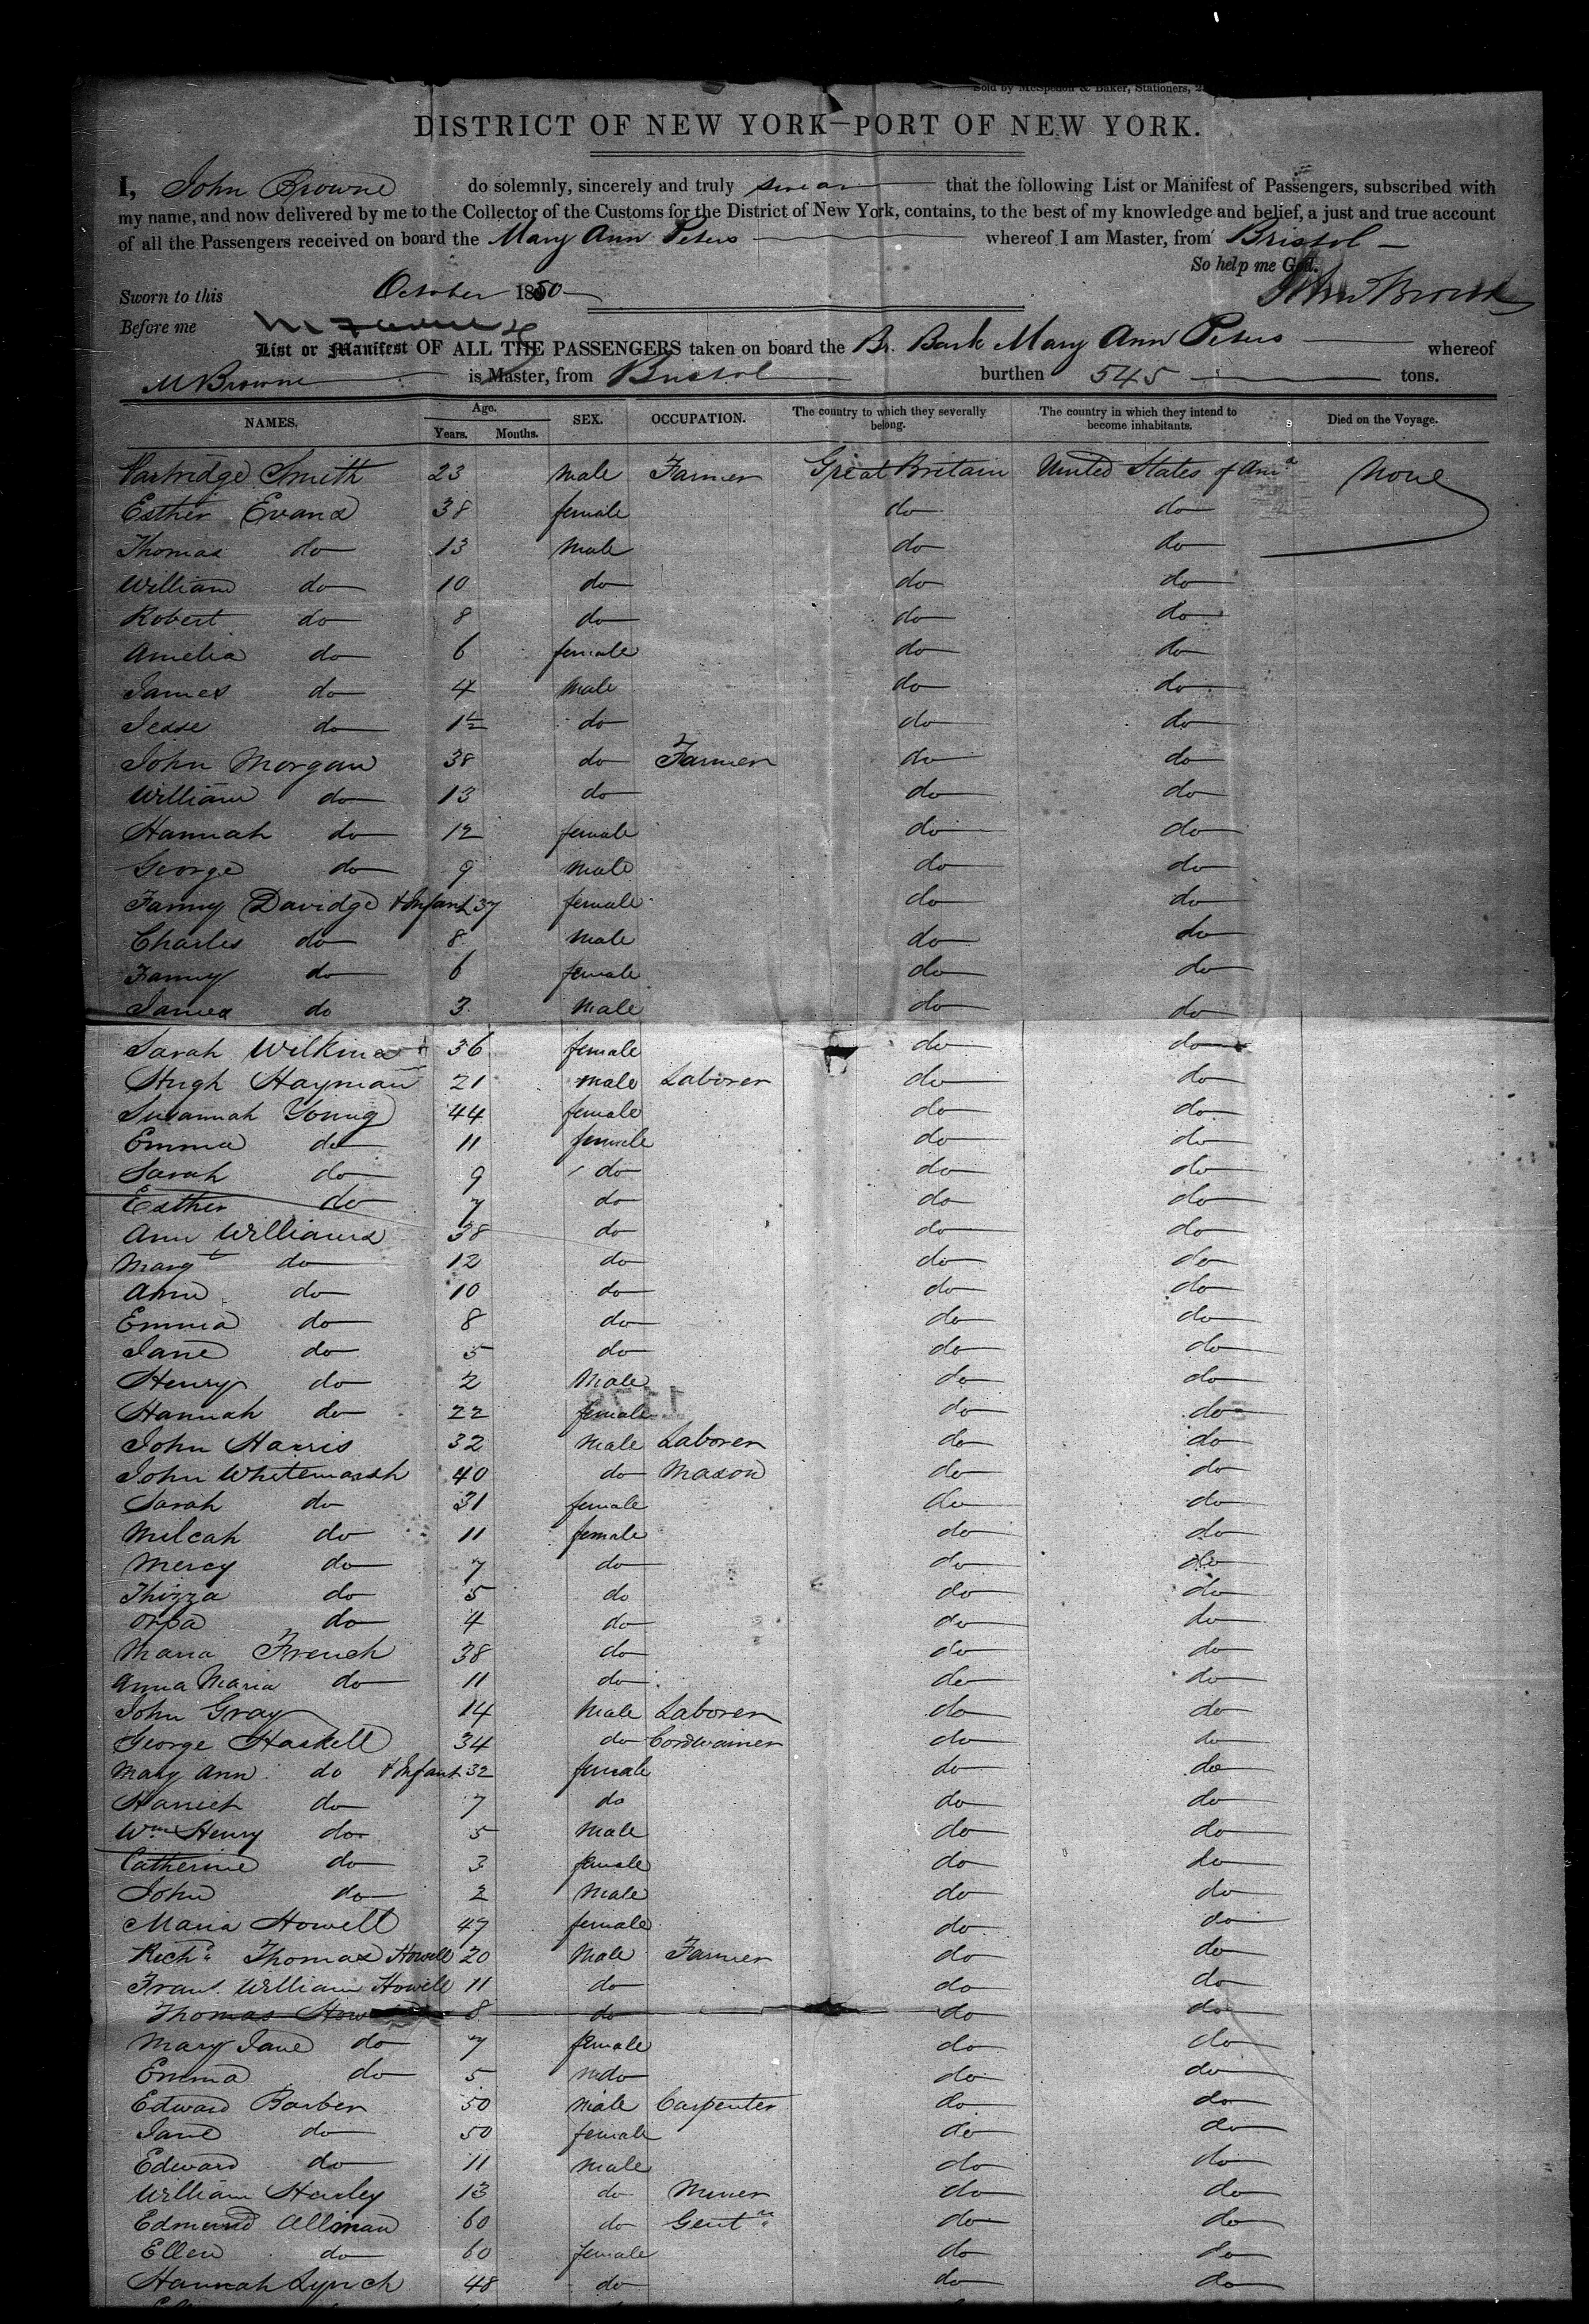 Sold by McSpedon & Baker, Stationers, 2
DISTRICT OF NEW YORK—PORT OF NEW YORK.
I, John Browne do solemnly, sincerely and truly swear that the following List or Manifest of Passengers, subscribed with
my name, and now delivered by me to the Collector of the Customs for the District of New York, contains, to the best of my knowledge and belief, a just and true account
of all the Passengers received on board the Mary Ann Peters whereof I am Master, from Bristol
So help me God.
Sworn to this October 1850 John Browne
Before me
List or Manifest OF ALL THE PASSENGERS taken on board the Br. Bark Mary Ann Peters whereof
M Browne is Master, from Bristol burthen 545 tons.
NAMES. Age. Years. Months. SEX. OCCUPATION. The country to which they severally belong. The country in which they intend to become inhabitants. Died on the Voyage.
Partridge Smith 23 male Farmer Great Britain United States of Ama None
Esther Evans 38 female do do
Thomas do 13 male do do
William do 10 do do do
Robert do 8 do do do
Amelia do 6 female do do
James do 4 male do do
Jesse do 1½ do do do
John Morgan 38 do Farmer do do
William do 13 do do do
Hannah do 12 female do do
George do 9 male do do
Fanny Davidge & Infant 37 female do do
Charles do 8 male do do
Fanny do 6 female do do
James do 3 male do do
Sarah Wilkins 36 female do do
Hugh Hayman 21 male Laborer do do
Susannah Young 44 female do do
Emma do 11 female do do
Sarah do 9 do do do
Esther do 7 do do do
Ann Williams 38 do do do
Margt do 12 do do do
Ann do 10 do do do
Emma do 8 do do do
Jane do 5 do do do
Henry do 2 Male do do
Hannah do 22 female do do
John Harris 32 male Laborer do do
John Whitemarsh 40 do Mason do do
Sarah do 31 female do do
Milcah do 11 female do do
Mercy do 7 do do do
Thizza do 5 do do do
Orpa do 4 do do do
Maria French 38 do do do
Anna Maria do 11 do do do
John Gray 14 Male Laborer do do
George Haskell 34 do Cordwainer do do
Mary Ann do & Infant 32 female do do
Harriet do 7 do do do
Wm Henry do 5 male do do
Catherine do 3 female do do
John do 2 Male do do
Maria Howell 47 female do do
Richd Thomas Howell 20 Male Farmer do do
Fran. William Howell 11 do do do
Thomas How 8 do do do
Mary Jane do 7 female do do
Emma do 5 do do do
Edward Barber 50 male Carpenter do do
Jane do 50 female do do
Edward do 11 male do do
William Hurley 13 do Miner do do
Edmund Allman 60 do Gentn do do
Ellen do 60 female do do
Hannah Lynch 48 do do do